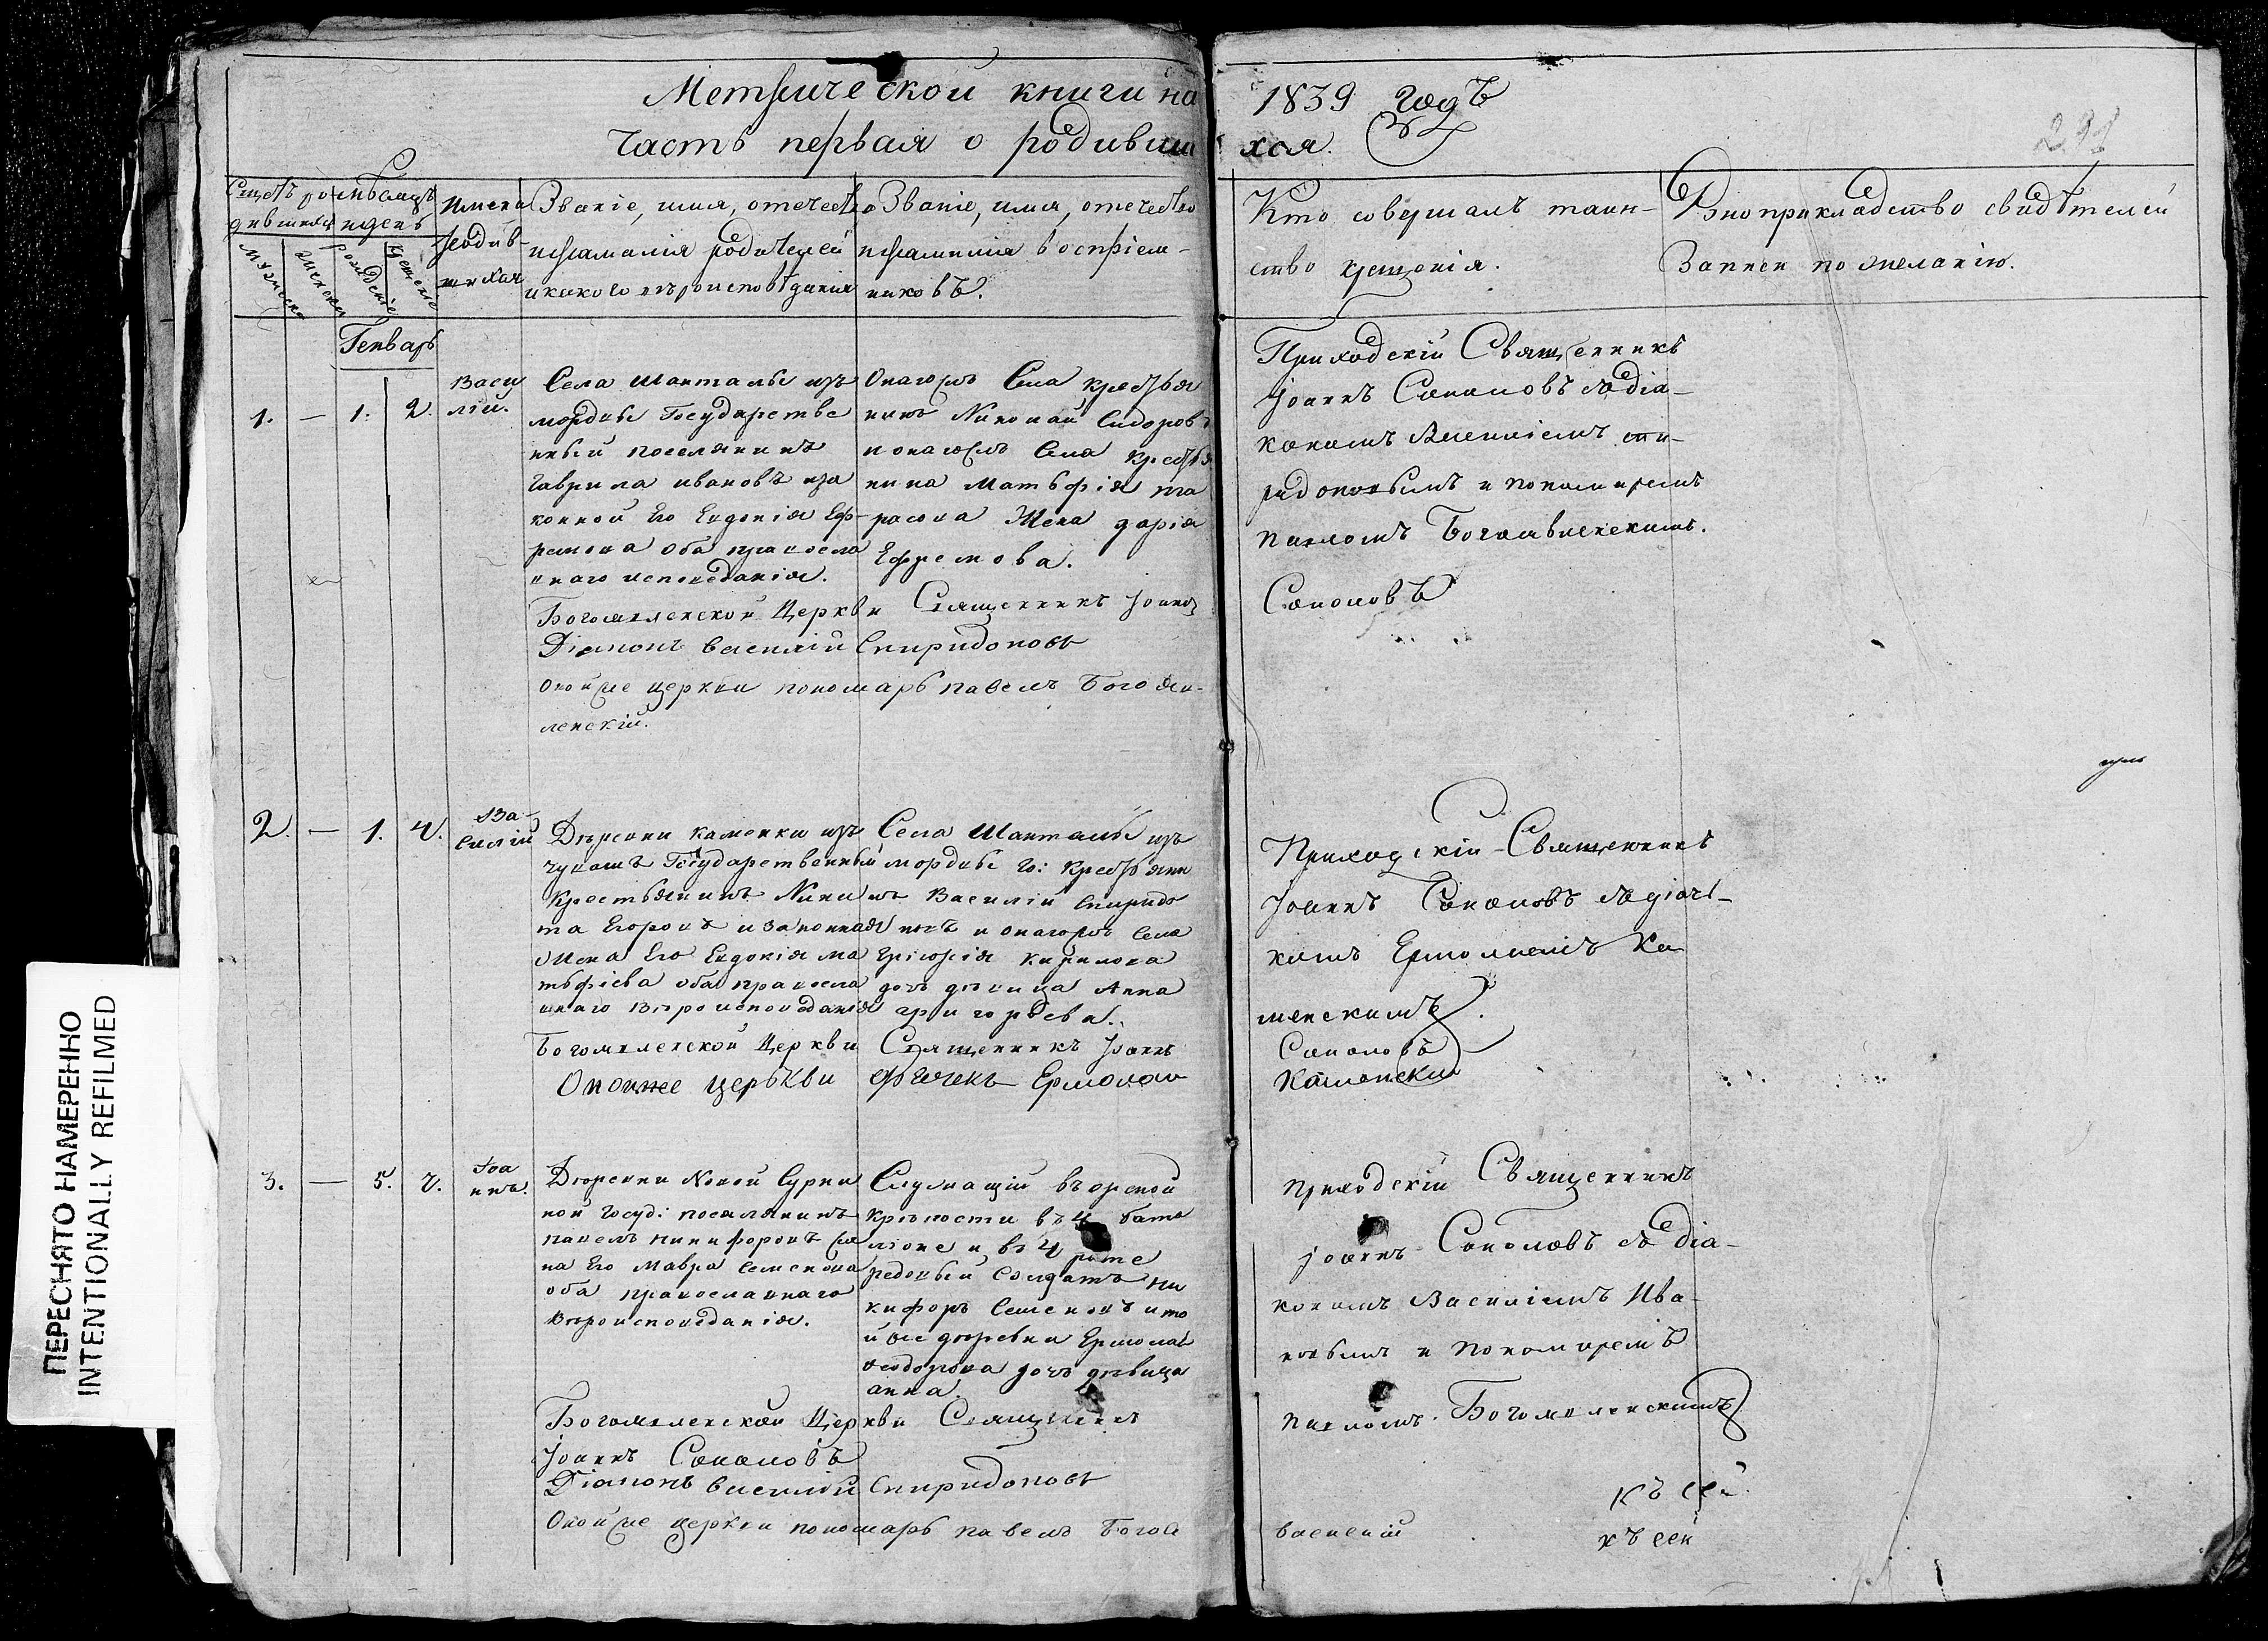 Метрической книги на 1839 годъ
часть первая о родивши хся.
291
Счетъ ро мѣсяцъ
дившихся и день
мужеска
женска
рожденіе
крещеніе
Имена
родив-
шихся
Званіе, имя, отечество
и фамилія родителей
и какого вѣроисповѣданія
Званіе, имя, отечество
и фамилія воспріем-
никовъ.
Кто совершалъ таин-
ство крещенія.
Рукоприкладство свидѣтелей
записи по желанію.
Генварь
1. — 1. 2.
Васи
лій.
Села Шанталы изъ
мордвы Государстве
нный поселянинъ
Гаврила ивановъ иза
конной Его Евдокія Еф-
ремова оба правосла
внаго исповеданія.
Онагожъ Села крестья
нинъ Николай Сидоровъ
и онагожъ Села крестья
нина Матвѣя та
расова Жена дарія
Ефремова.
Приходскій Священникъ
Іоаннъ Соколовъ съ діа-
кономъ Василіемъ спи-
ридоновымъ и пономаремъ
павломъ Богоявленскимъ.
Богоявленской Церкви Священникъ Іоаннъ Соколовъ
Діаконъ василій Спиридоновъ
Оной же церкви пономарь павелъ Богояв-
ленскій.
2. — 1. 4.
Ва-
силій
Дѣревни каменки изъ
чувашъ Государственный
Крестьянинъ Ники
та Егоровъ и законная
Жена Его Евдокія ма
твѣева оба правосла
внаго вѣроисповѣданія
Села Шанталы изъ
мордвы го: крестьяни
нъ Василій Спиридо
новъ и онагожъ Села
Григорія кирилова
дочь дѣвица Анна
григорьева.
Приходскій Священникъ
Іоаннъ Соколовъ съ дьяч-
комъ Ермолаемъ Ка
менскимъ.
Богоявленской Церкви Священникъ Іоаннъ Соколовъ
Оной же церькви дьячекъ Ермолаи Каменски
3. — 5. 7.
Іоа
ннъ.
Дѣревни Новой Сурки
ной Госуд: поселянинъ
павелъ никифоровъ же
на Его Мавра Семенова
оба православнаго
вѣроисповеданія.
Служащій въ орской
крѣпости въ 4 бата
ліоне и въ 4 роте
редовый Солдатъ Ни
кифоръ Семеновъ и то
й же дѣревни Ермолая
ѳеодорова дочь дѣвица
анна.
приходскій Священникъ
Іоаннъ Соколовъ съ діа-
кономъ Василіемъ Ива-
новымъ и пономаремъ
павломъ Богоявленскимъ
Богоявленской Церкви Священникъ
Іоаннъ Соколовъ
Діаконъ василій Спиридоновъ
Оной же церкви пономарь павелъ Богоя
къ сей
къ сей
ПЕРЕСНЯТО НАМЕРЕННО
INTENTIONALLY REFILMED